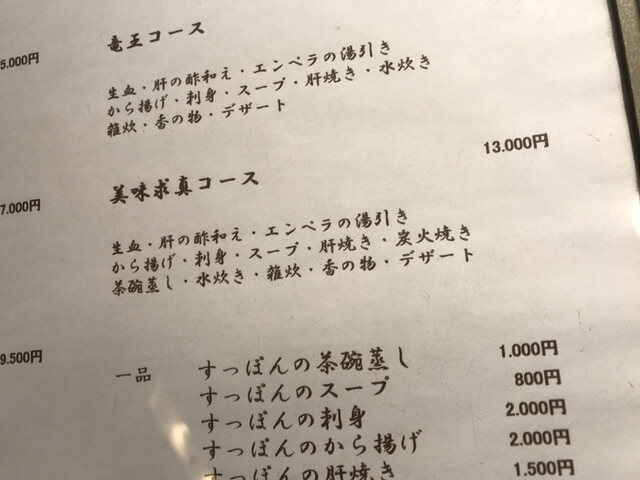 竜王コース
5.000円
生血・肝の酢和え・エンペラの湯引き
から揚げ・刺身・スープ・肝焼き・水炊き
雑炊・香の物・デザート
13.000円
美味求真コース
7.000円
生血・肝の酢和え・エンペラの湯引き
から揚げ・刺身・スープ・肝焼き・炭火焼き
茶碗蒸し・水炊き・雑炊・香の物・デザート
9.500円
一品 すっぽんの茶碗蒸し 1.000円
すっぽんのスープ 800円
すっぽんの刺身 2.000円
すっぽんのから揚げ 2.000円
すっぽんの肝焼き 1.500円